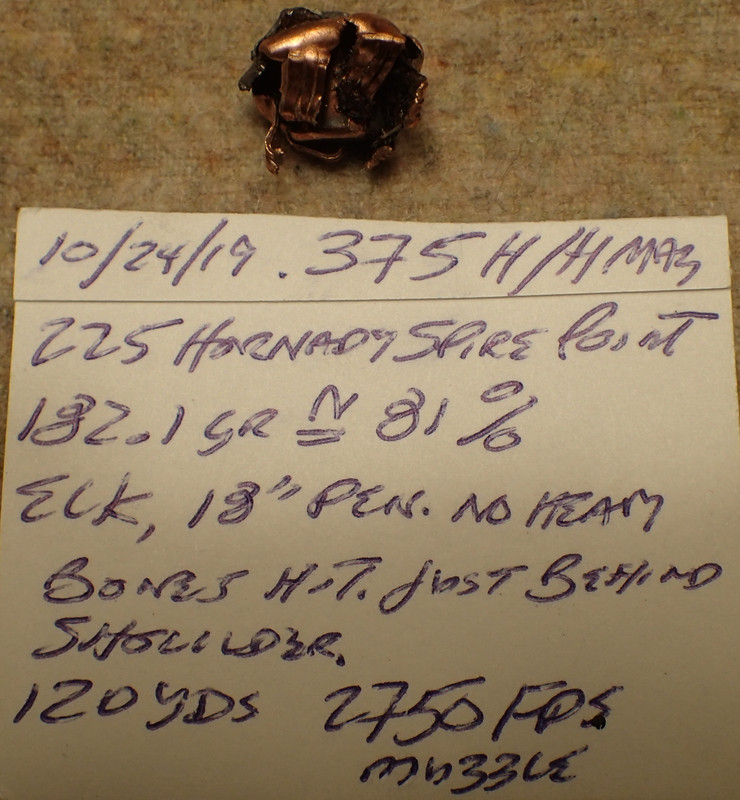 10/24/19 .375 H/H MAG
225 HORNADY SPIRE POINT
182.1 GR ≅ 81%
ELK, 18" PEN. NO HEAVY
BONES HIT. JUST BEHIND
SHOULDER.
120 YDS 2750 FPS
MUZZLE